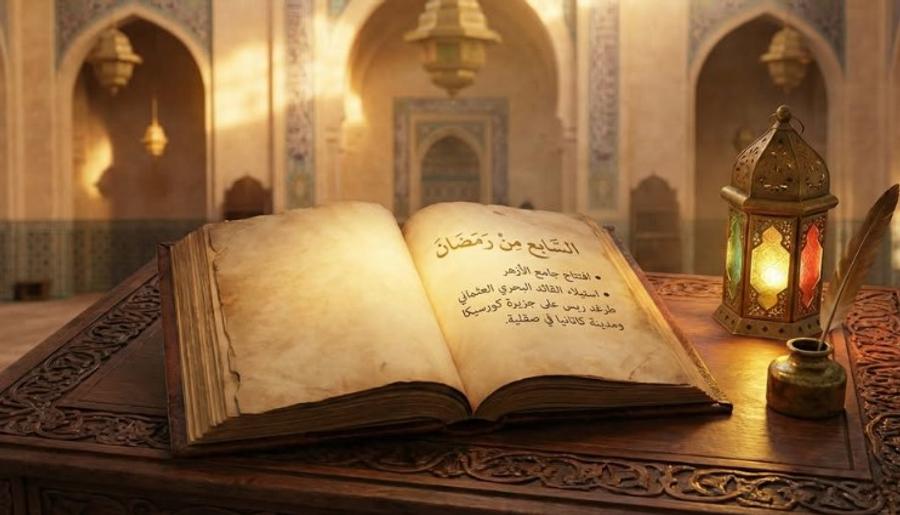 السَّابِع مِنْ رَمَضَانَ
• افتتاح جامع الأزهر
• استيلاء القائد البحري العثماني
طرغد ريس على جزيرة كورسيكا
ومدينة كاتانيا في صقلية.